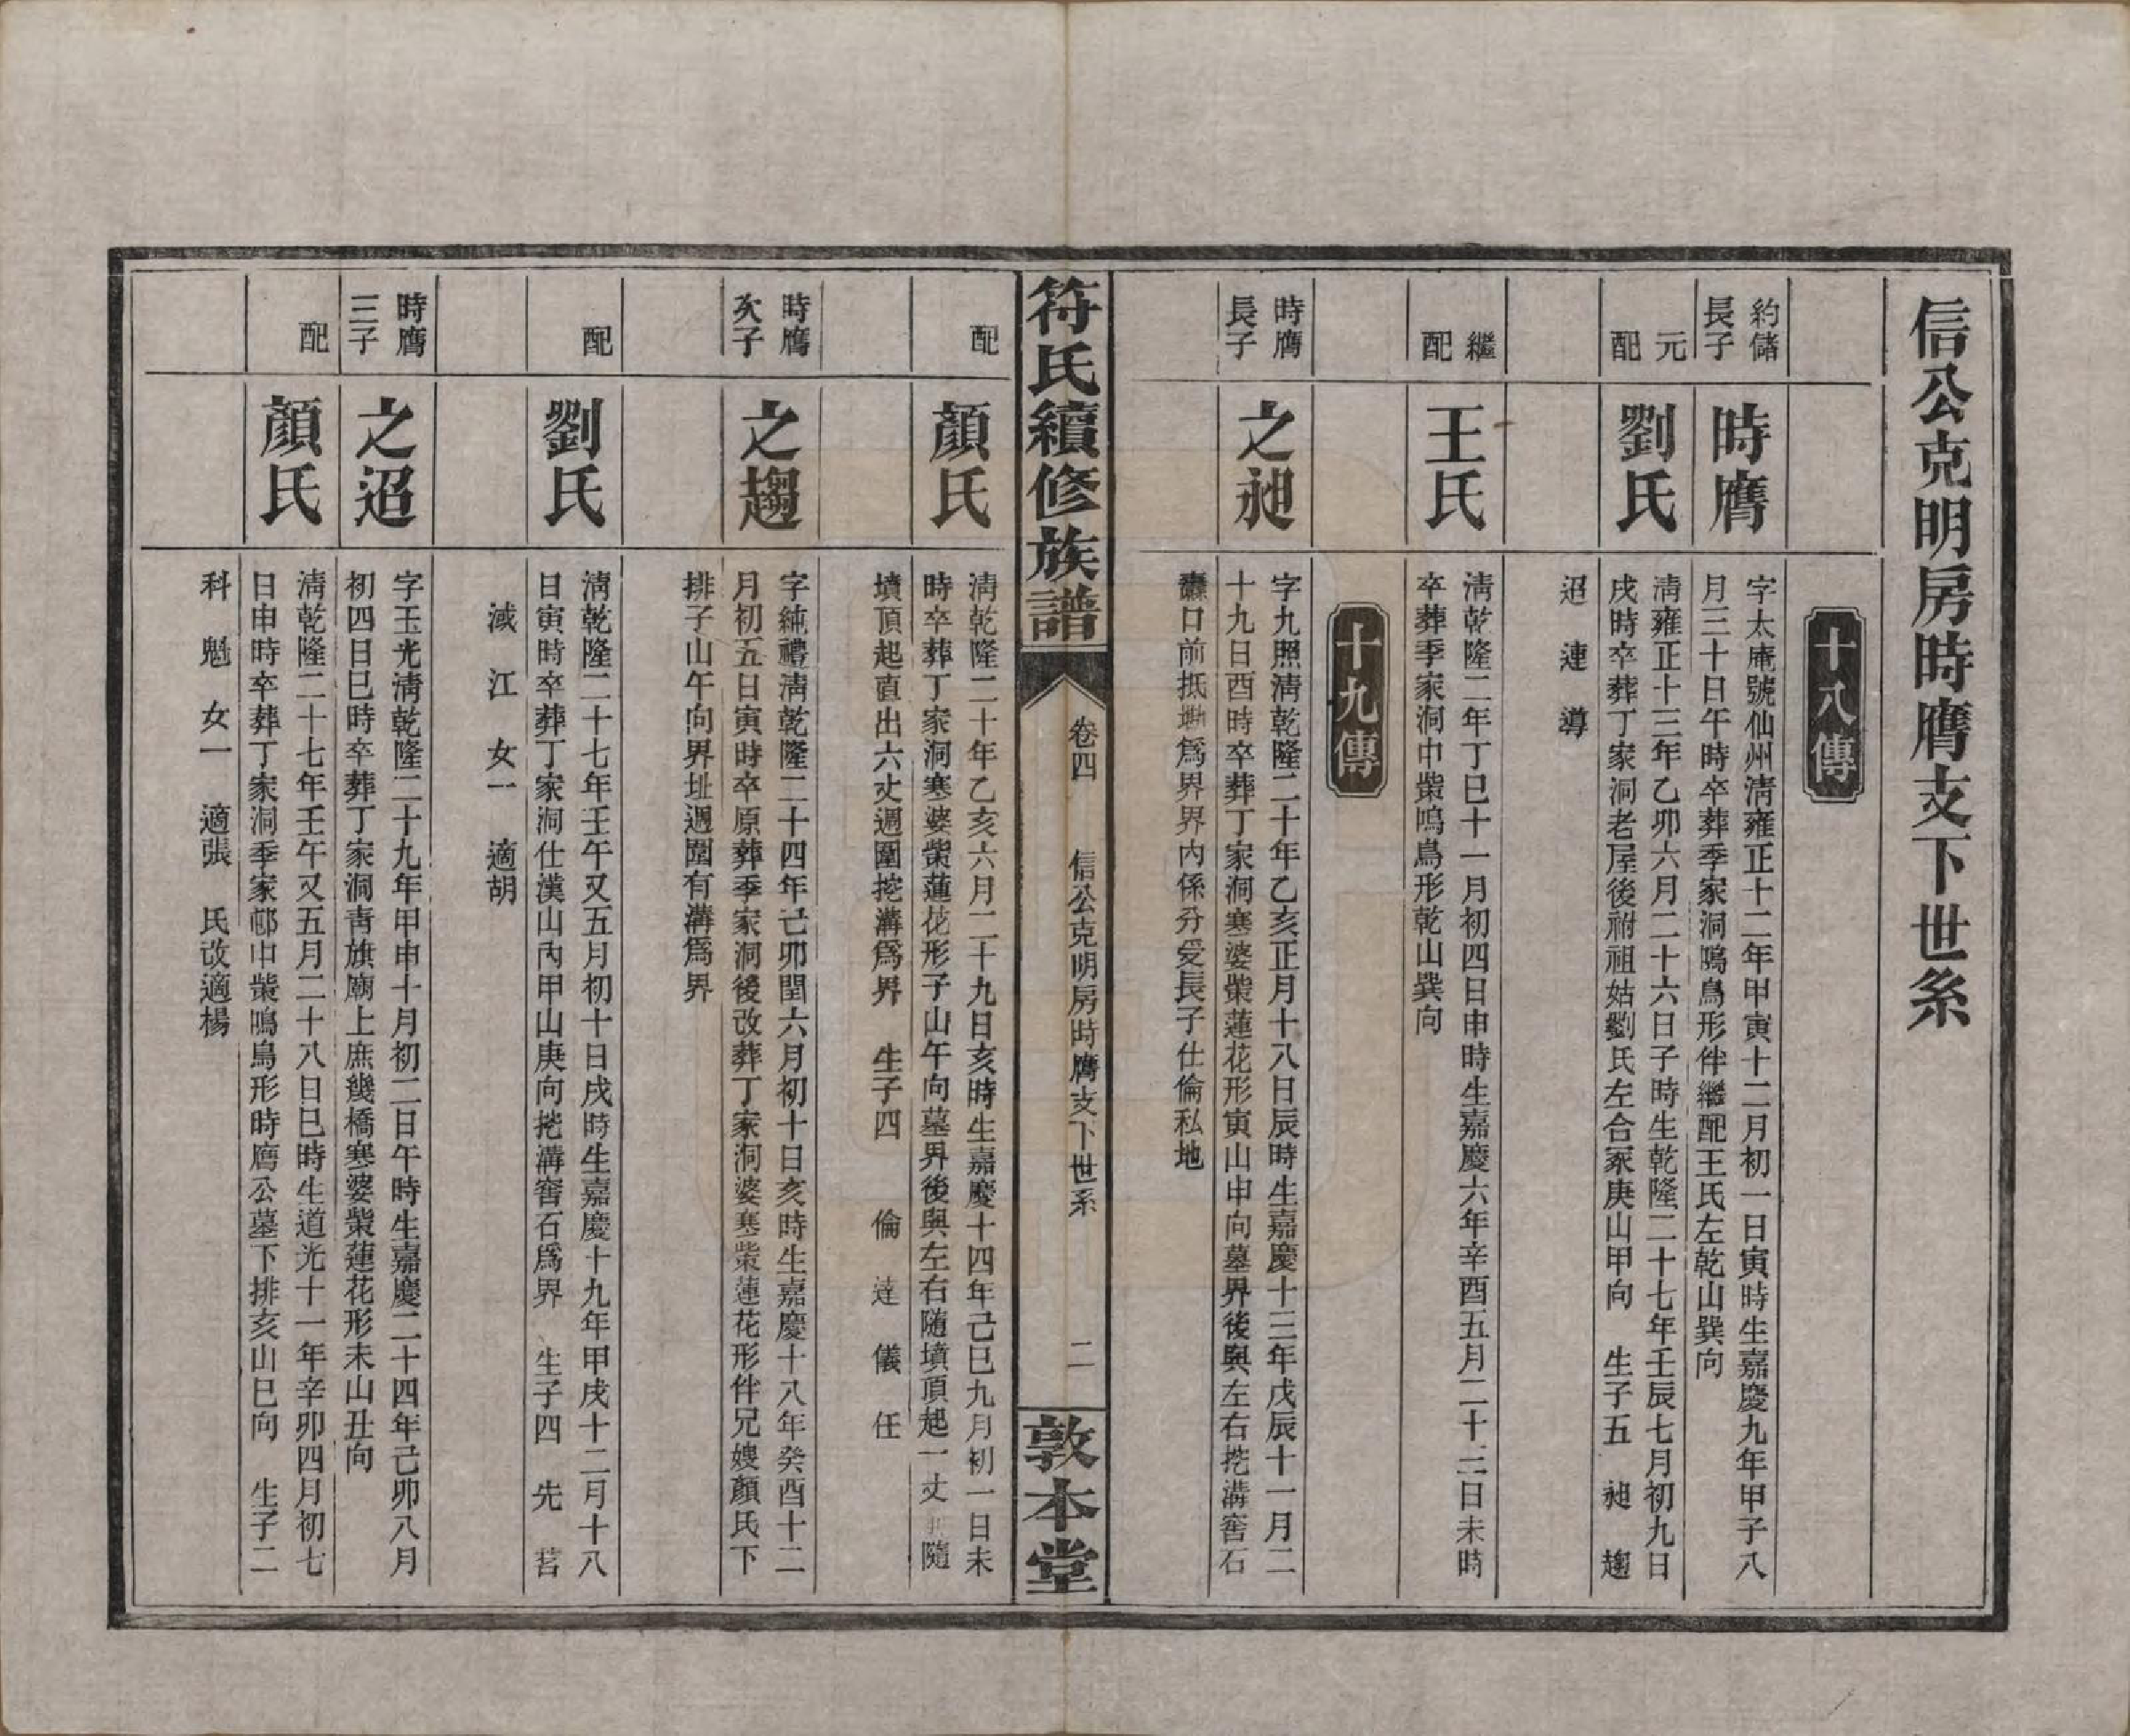 信公克明房時膺支下世系
十八傳
約儲
長子
時膺
字太庵號仙州清雍正十二年甲寅十二月初一日寅時生嘉慶九年甲子八
月三十日午時卒葬季家洞鳴鳥形伴繼配王氏左乾山巽向
元
配
劉氏
清雍正十三年乙卯六月二十六日子時生乾隆二十七年壬辰七月初九日
戌時卒葬丁家洞老屋後祔祖姑劉氏左合冢庚山甲向 生子五 昶 趨
迢 連 導
繼
配
王氏
清乾隆二年丁巳十一月初四日申時生嘉慶六年辛酉五月二十三日未時
卒葬季家洞中柴鳴鳥形乾山巽向
十九傳
時膺
長子
之昶
字九照清乾隆二十年乙亥正月十八日辰時生嘉慶十三年戊辰十一月二
十九日酉時卒葬丁家洞寒婆柴蓮花形寅山申向墓界後與左右挖溝窖石
口前抵墈爲界界內係分受長子仕倫私地
符氏續修族譜
卷四 信公克明房時膺支下世系 二
敦本堂
配
顏氏
清乾隆二十年乙亥六月二十九日亥時生嘉慶十四年己巳九月初一日未
時卒葬丁家洞寒婆柴蓮花形子山午向墓界後與左右隨墳頂起一丈 隨
墳頂起直出六丈週圍挖溝爲界 生子四 倫 達 儀 任
時膺
次子
之趨
字純禮清乾隆二十四年己卯閏六月初十日亥時生嘉慶十八年癸酉十二
月初五日寅時卒原葬季家洞後改葬丁家洞婆寒柴蓮花形伴兄嫂顏氏下
排子山午向界址週圍有溝爲界
配
劉氏
清乾隆二十七年壬午又五月初十日戌時生嘉慶十九年甲戌十二月十八
日寅時卒葬丁家洞仕漢山內甲山庚向挖溝窖石爲界 生子四 先 若
淢 江 女一 適胡
時膺
三子
之迢
字玉光清乾隆二十九年甲申十月初二日午時生嘉慶二十四年己卯八月
初四日巳時卒葬丁家洞青旗廟上庶幾橋寒婆柴蓮花形未山丑向
配
顏氏
清乾隆二十七年壬午又五月二十八日巳時生道光十一年辛卯四月初七
日申時卒葬丁家洞季家邨中柴鳴鳥形時膺公墓下排亥山巳向 生子二
科 魁 女一 適張 氏改適楊